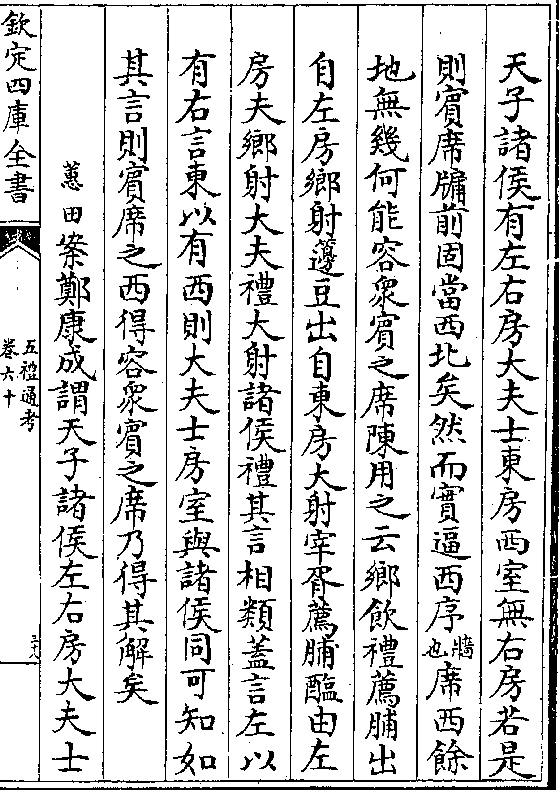 天子諸侯有左右房大夫士東房西室無右房若是
則賓席牖前固當西北矣然而實逼西序牆也席西餘
地無幾何能容衆賓之席陳用之云鄉飲禮薦脯出
自左房鄉射籩豆出自東房大射宰胥薦脯醢由左
房夫鄉射大夫禮大射諸侯禮其言相類蓋言左以
有右言東以有西則大夫士房室與諸侯同可知如
其言則賓席之西得容衆賓之席乃得其解矣
蕙田案鄭康成謂天子諸侯左右房大夫士
欽定四庫全書
五禮通考
卷六十